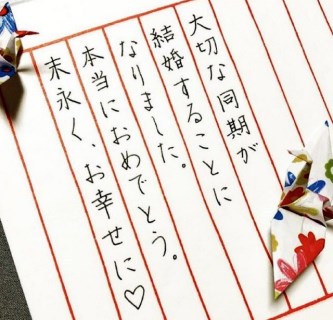 大切な同期が
結婚することに
なりました。
本当におめでとう。
末永く、お幸せに♡